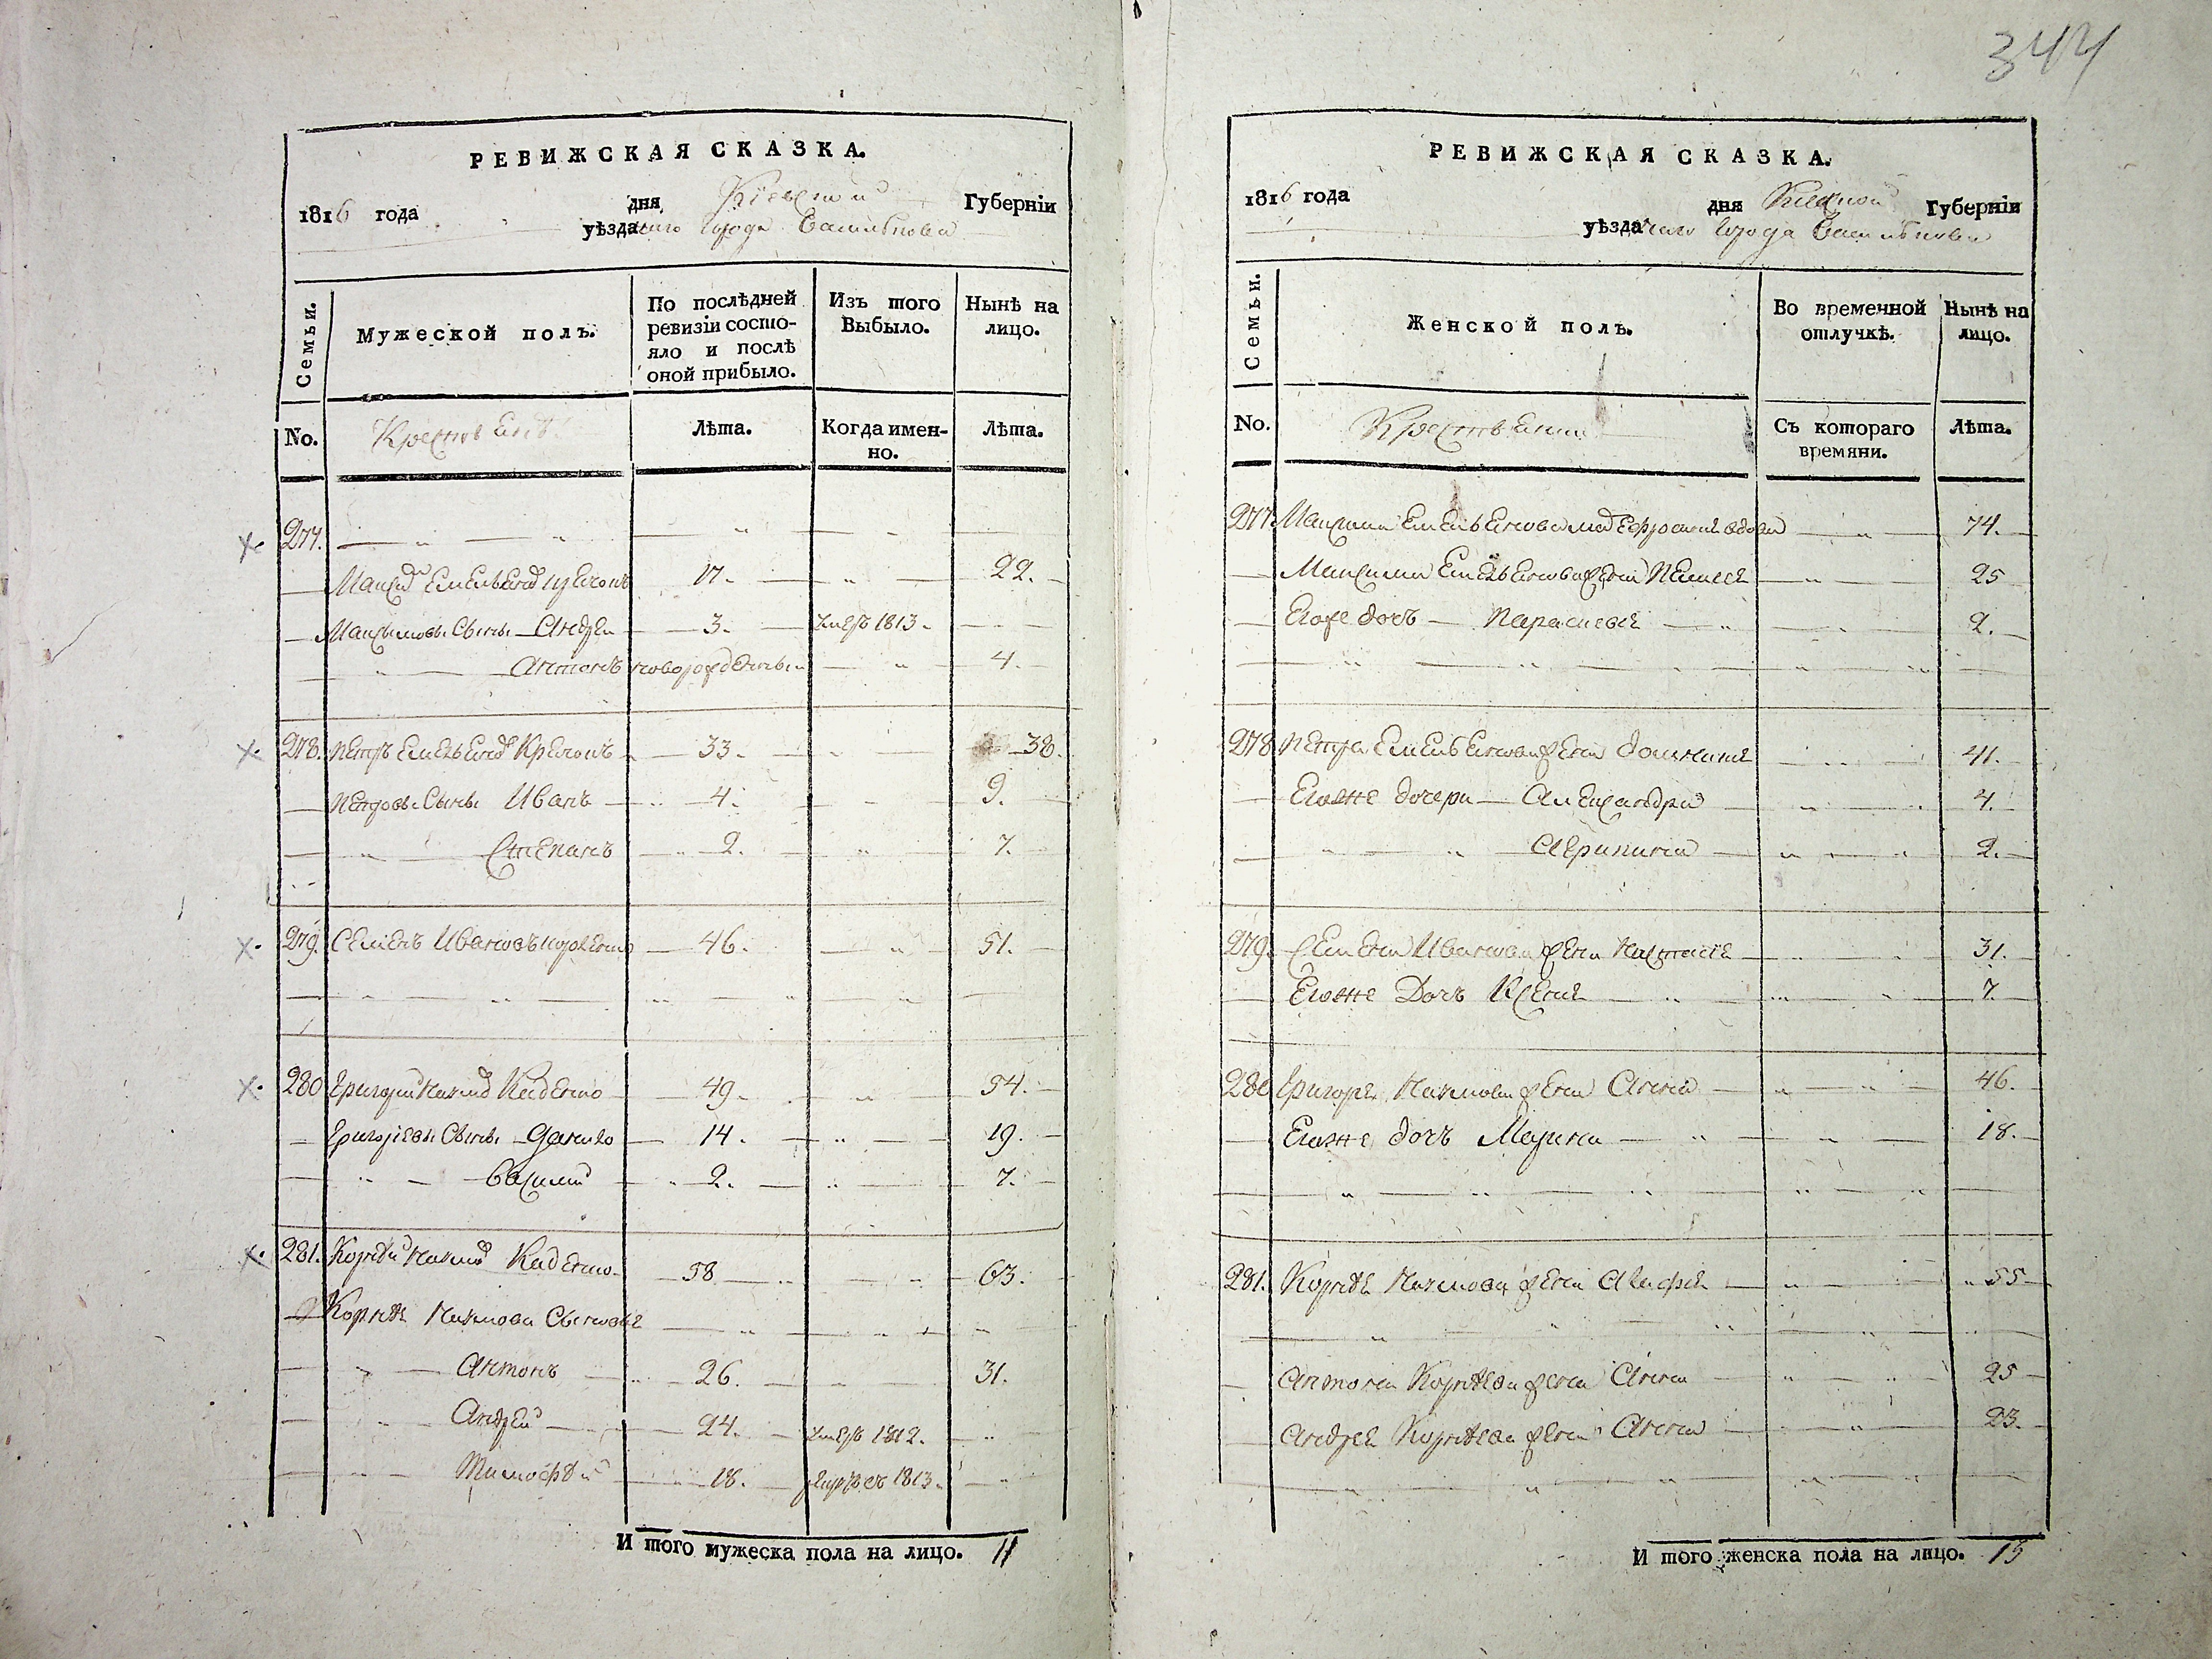 344
РЕВИЖСКАЯ СКАЗКА.
1816 года дня Кіевской Губерніи
уѣзднаго города Василькова
Семьи.
Мужеской полъ.
По послѣдней ревизіи состо-
яло и послѣ оной прибыло.
Изъ того Выбыло.
Нынѣ на лицо.
No.
Крестьяне
Лѣта.
Когда имен-
но.
Лѣта.
277.
Максимъ Емельяновъ 17. 22.
Максимовы Сыны Андрей 3. умеръ 1813.
Антонъ новорожденны 4.
278. Петръ Емельяновъ 33. 38.
Петровы Сыны Иванъ 4. 9.
Степанъ 2. 7.
279. Семенъ Ивановъ 46. 51.
280 Григорій Наумовъ 49. 54.
Григоріевы Сыны Данило 14. 19.
Василій 2. 7.
281. Корнѣй Наумовъ 58 63.
Корнѣя Наумова Сыновья
Антонъ 26. 31.
Андрей 24. умеръ 1812.
Тимофѣй 18. 1813.
И того мужеска пола на лицо. 11
РЕВИЖСКАЯ СКАЗКА.
1816 года дня Кіевской Губерніи
уѣзднаго города Василькова
Семьи.
Женской полъ.
Во временной отлучкѣ.
Нынѣ на лицо.
No.
Крестьяне
Съ котораго времяни.
Лѣта.
277. Максима Емельянова Ефросинія вдова 74.
Максима Емельянова жена Пелагея 25
Егоже дочь Параскевія 2.
278 Петра Емельянова жена Домникія 41.
Егоже дочери Александра 4.
Агрипина 2.
279. Семена Иванова жена Настасія 31.
Егоже Дочь Ксенія 7.
280 Григорія Наумова жена Анна 46.
Егоже дочь Марина 18.
281. Корнѣя Наумова жена Агафія 55
Антона Корнѣева жена Анна 25
Андрея Корнѣева жена Анна 23.
И того женска пола на лицо. 13